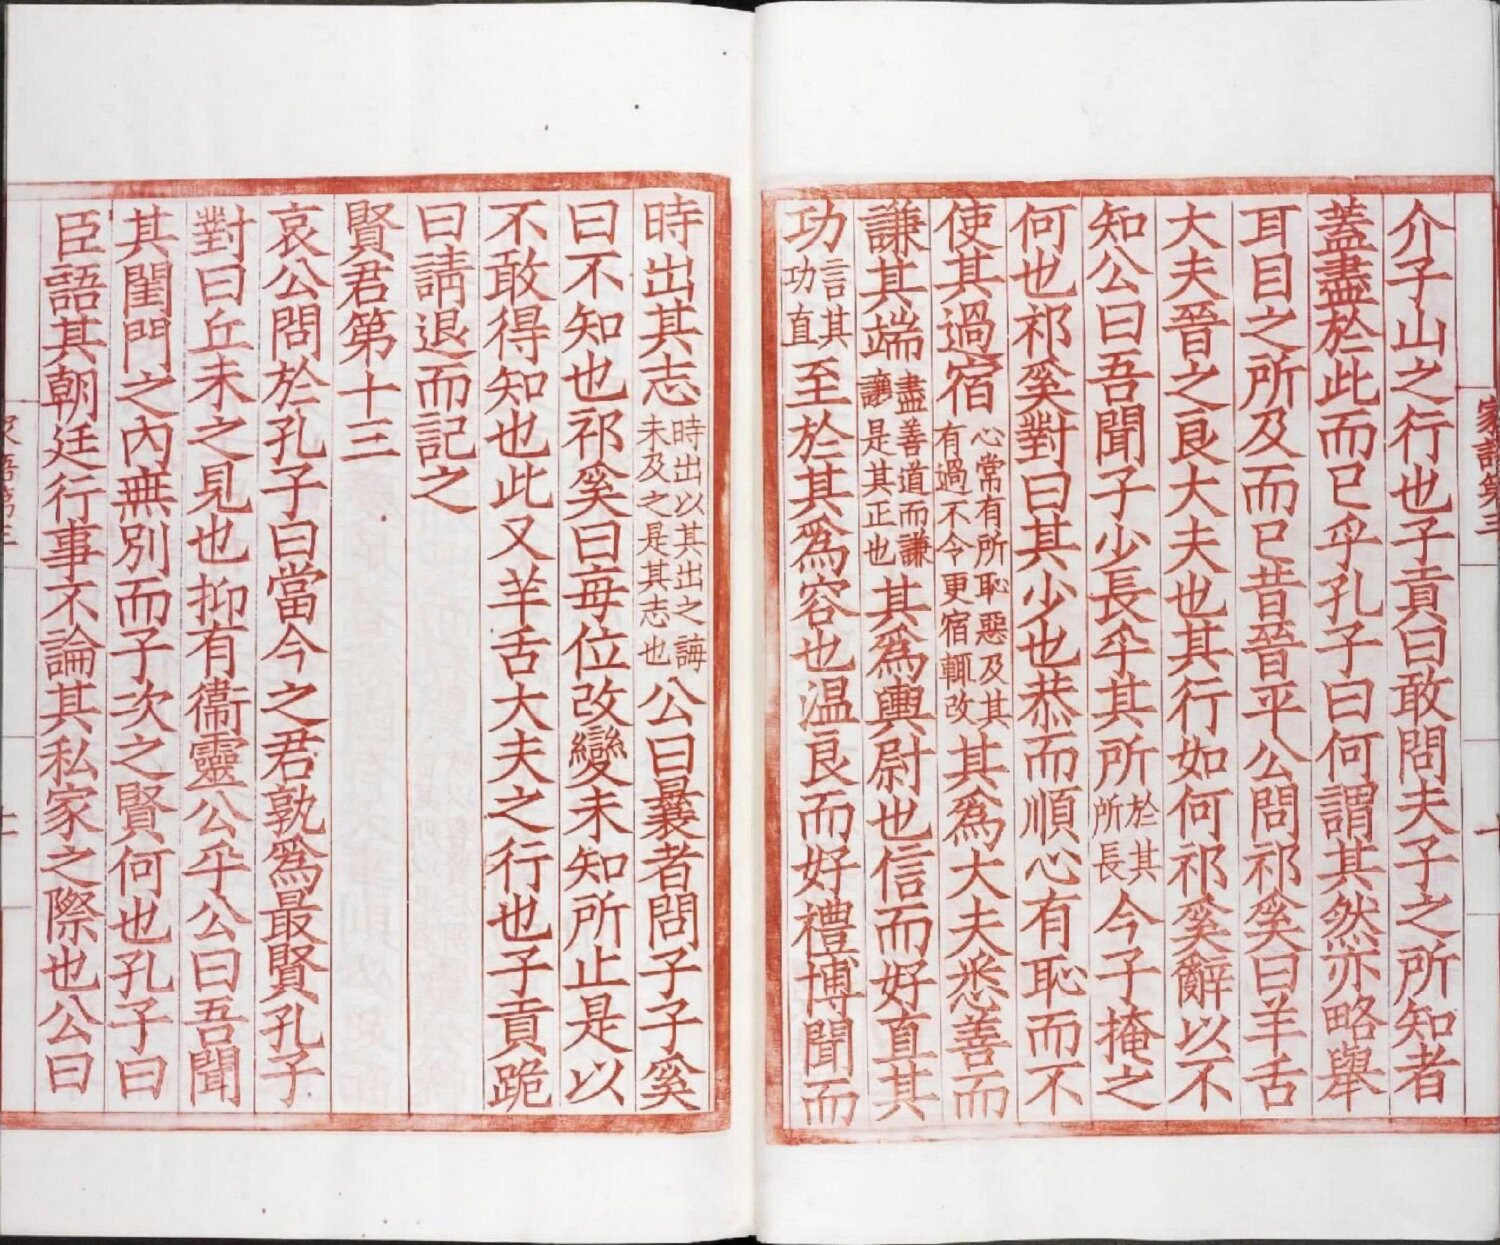 家語第三
十
介子山之行也子貢曰敢問夫子之所知者
蓋盡於此而已乎孔子曰何謂其然亦略舉
耳目之所及而已昔晉平公問祁奚曰羊舌
大夫晉之良大夫也其行如何祁奚辭以不
知公曰吾聞子少長乎其所於其所長今子掩之
何也祁奚對曰其少也恭而順心有恥而不
使其過宿心常有所恥惡及其有過不令更宿輒改其為大夫悉善而
謙其端盡善道而謙讓是其正也其為輿尉也信而好直其
功言其功直至於其為容也温良而好禮博聞而
時出其志時出以其出之誨未及之是其志也公曰曩者問子子奚
曰不知也祁奚曰每位改變未知所止是以
不敢得知也此又羊舌大夫之行也子貢跪
曰請退而記之
賢君第十三
哀公問於孔子曰當今之君孰為最賢孔子
對曰丘未之見也抑有衞靈公乎公曰吾聞
其閨門之內無別而子次之賢何也孔子曰
臣語其朝廷行事不論其私家之際也公曰